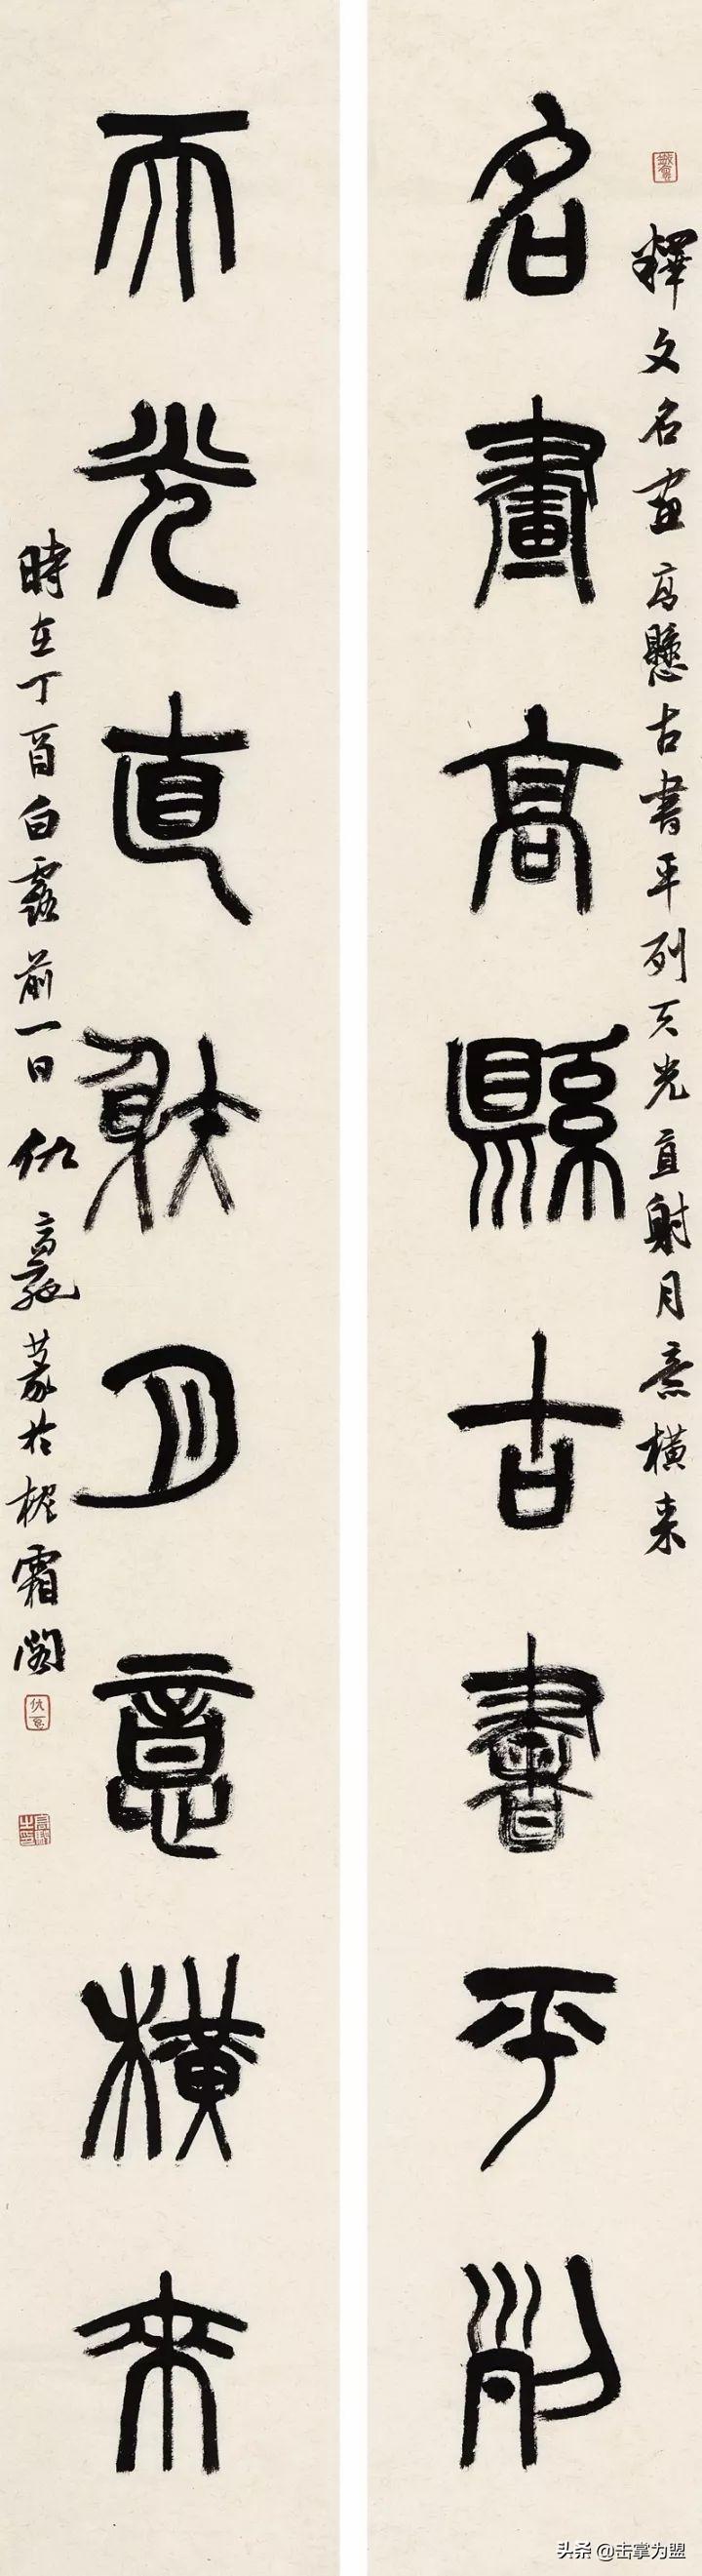 釋文名畫高懸古書平列天光直射月意橫來
名畫高縣古書平列
天光直射月意橫來
時在丁酉白露前一日仇高馳篆於霜閣
头条 @击掌为盟